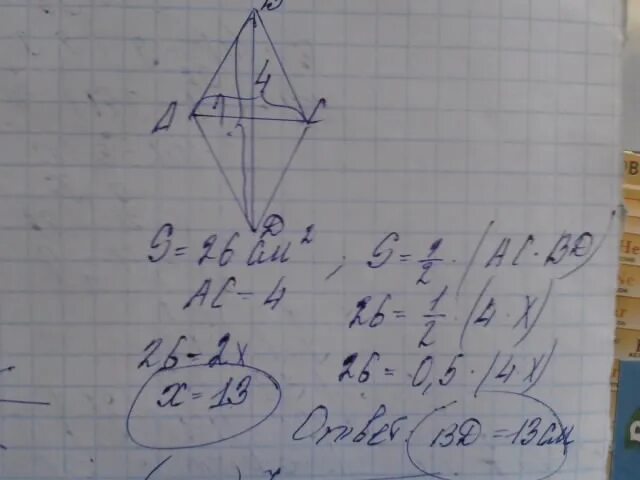 B
4
A
C
D
S = 26 см² ; S = 1/2 · (AC · BD)
AC = 4
26 = 1/2 · (4 · X)
26 = 2x
26 = 0,5 · (4 · X)
x = 13
Ответ: BD = 13 см